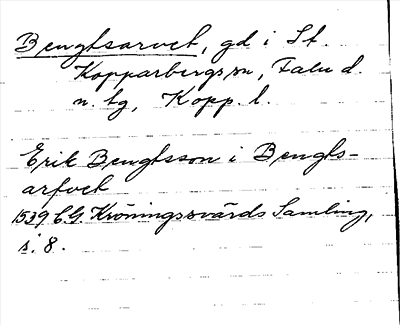 Bengtsarvet, gd i St.
Kopparbergs sn, Falu d.
n. tg, Kopp. l.
Erik Bengtsson i Bengts-
arfvet
1539 C.G. Kröningssvärds Samling,
s. 8.